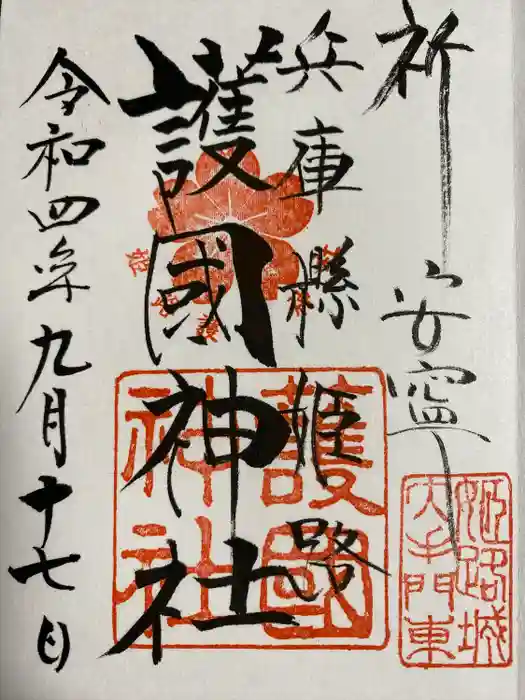 祈 安寧
兵庫縣姫路
護國神社
令和四年九月十七日
護國
神社
姫路城
大手門東